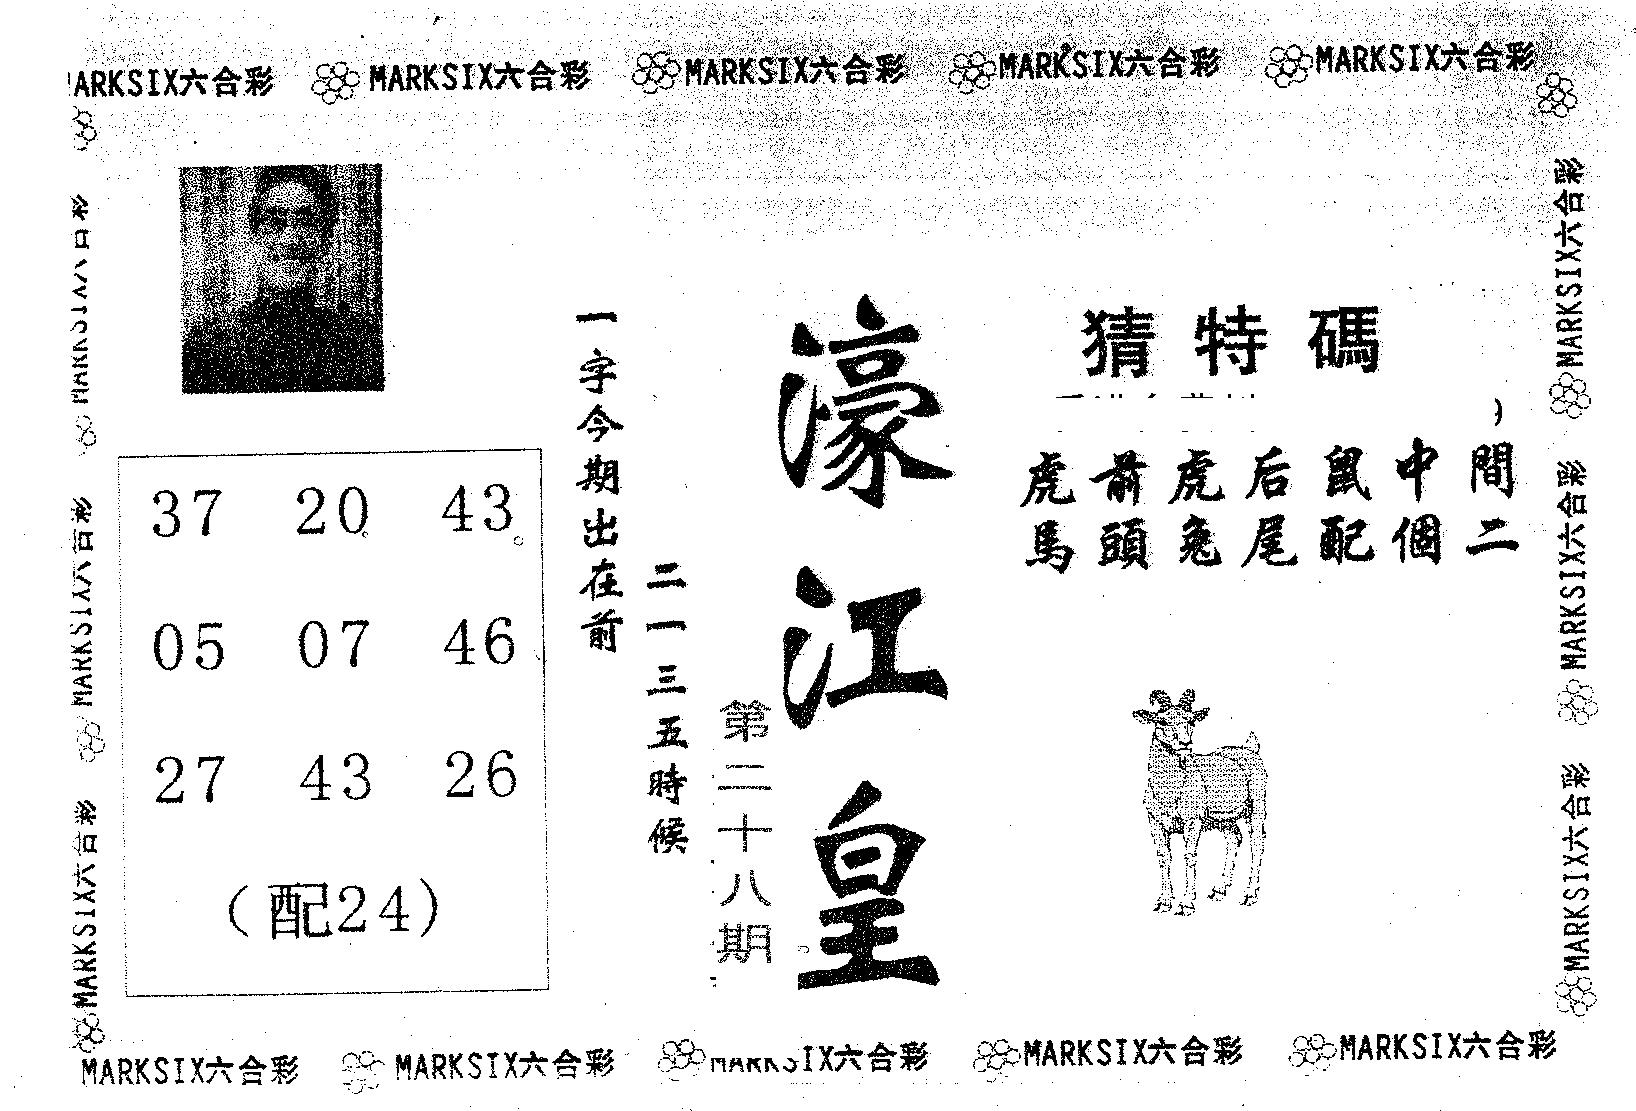 MARKSIX六合彩 MARKSIX六合彩 MARKSIX六合彩 MARKSIX六合彩
MARKSIX六合彩 MARKSIX六合彩 MARKSIX六合彩
MARKSIX六合彩 MARKSIX六合彩
猜特碼
虎前虎后鼠中間
馬頭兔尾配個二
濠江皇
第二十八期
一字今期出在前
二一三五時候
37 20 43
05 07 46
27 43 26
(配24)
MARKSIX六合彩 MARKSIX六合彩 MARKSIX六合彩 MARKSIX六合彩